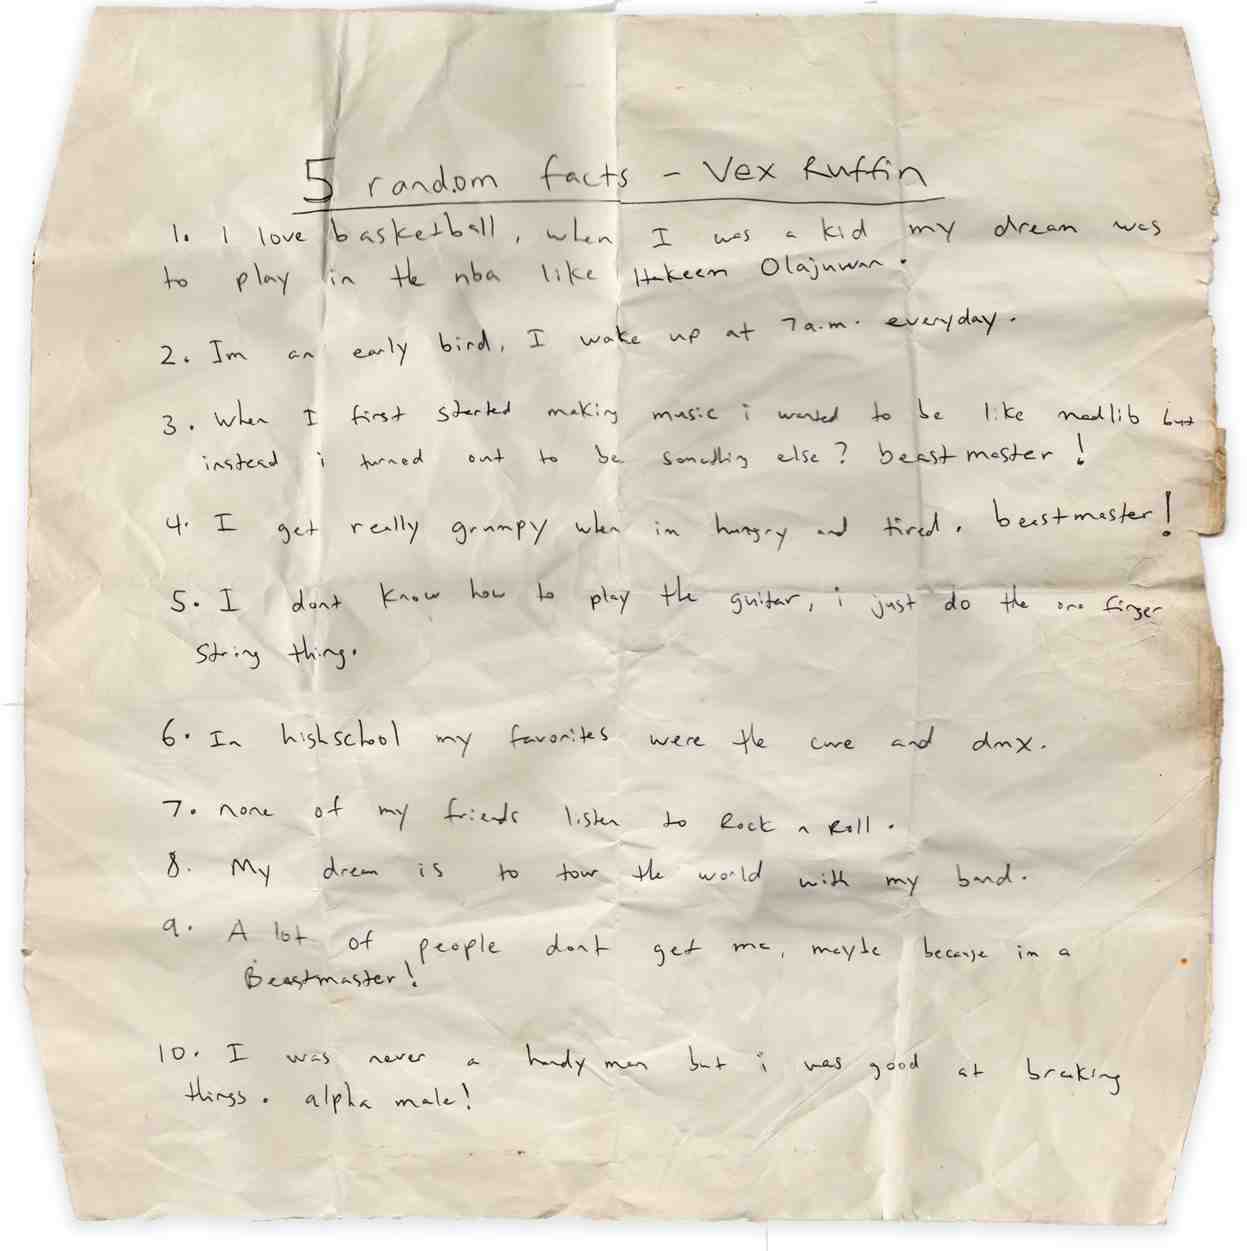 5 random facts - Vex Ruffin
1. I love basketball, when I was a kid my dream was
to play in the nba like Hakeem Olajuwan.
2. Im an early bird, I wake up at 7 a.m. everyday.
3. when I first started making music i wanted to be like madlib but
instead i turned out to be something else? beastmaster!
4. I get really grumpy when im hungry and tired. beastmaster!
5. I dont know how to play the guitar, i just do the one finger
string thing.
6. In highschool my favorites were the cure and dmx.
7. none of my friends listen to Rock n Roll.
8. My dream is to tour the world with my band.
9. A lot of people dont get me, maybe because im a
Beastmaster!
10. I was never a handy man but i was good at braking
things. alpha male!